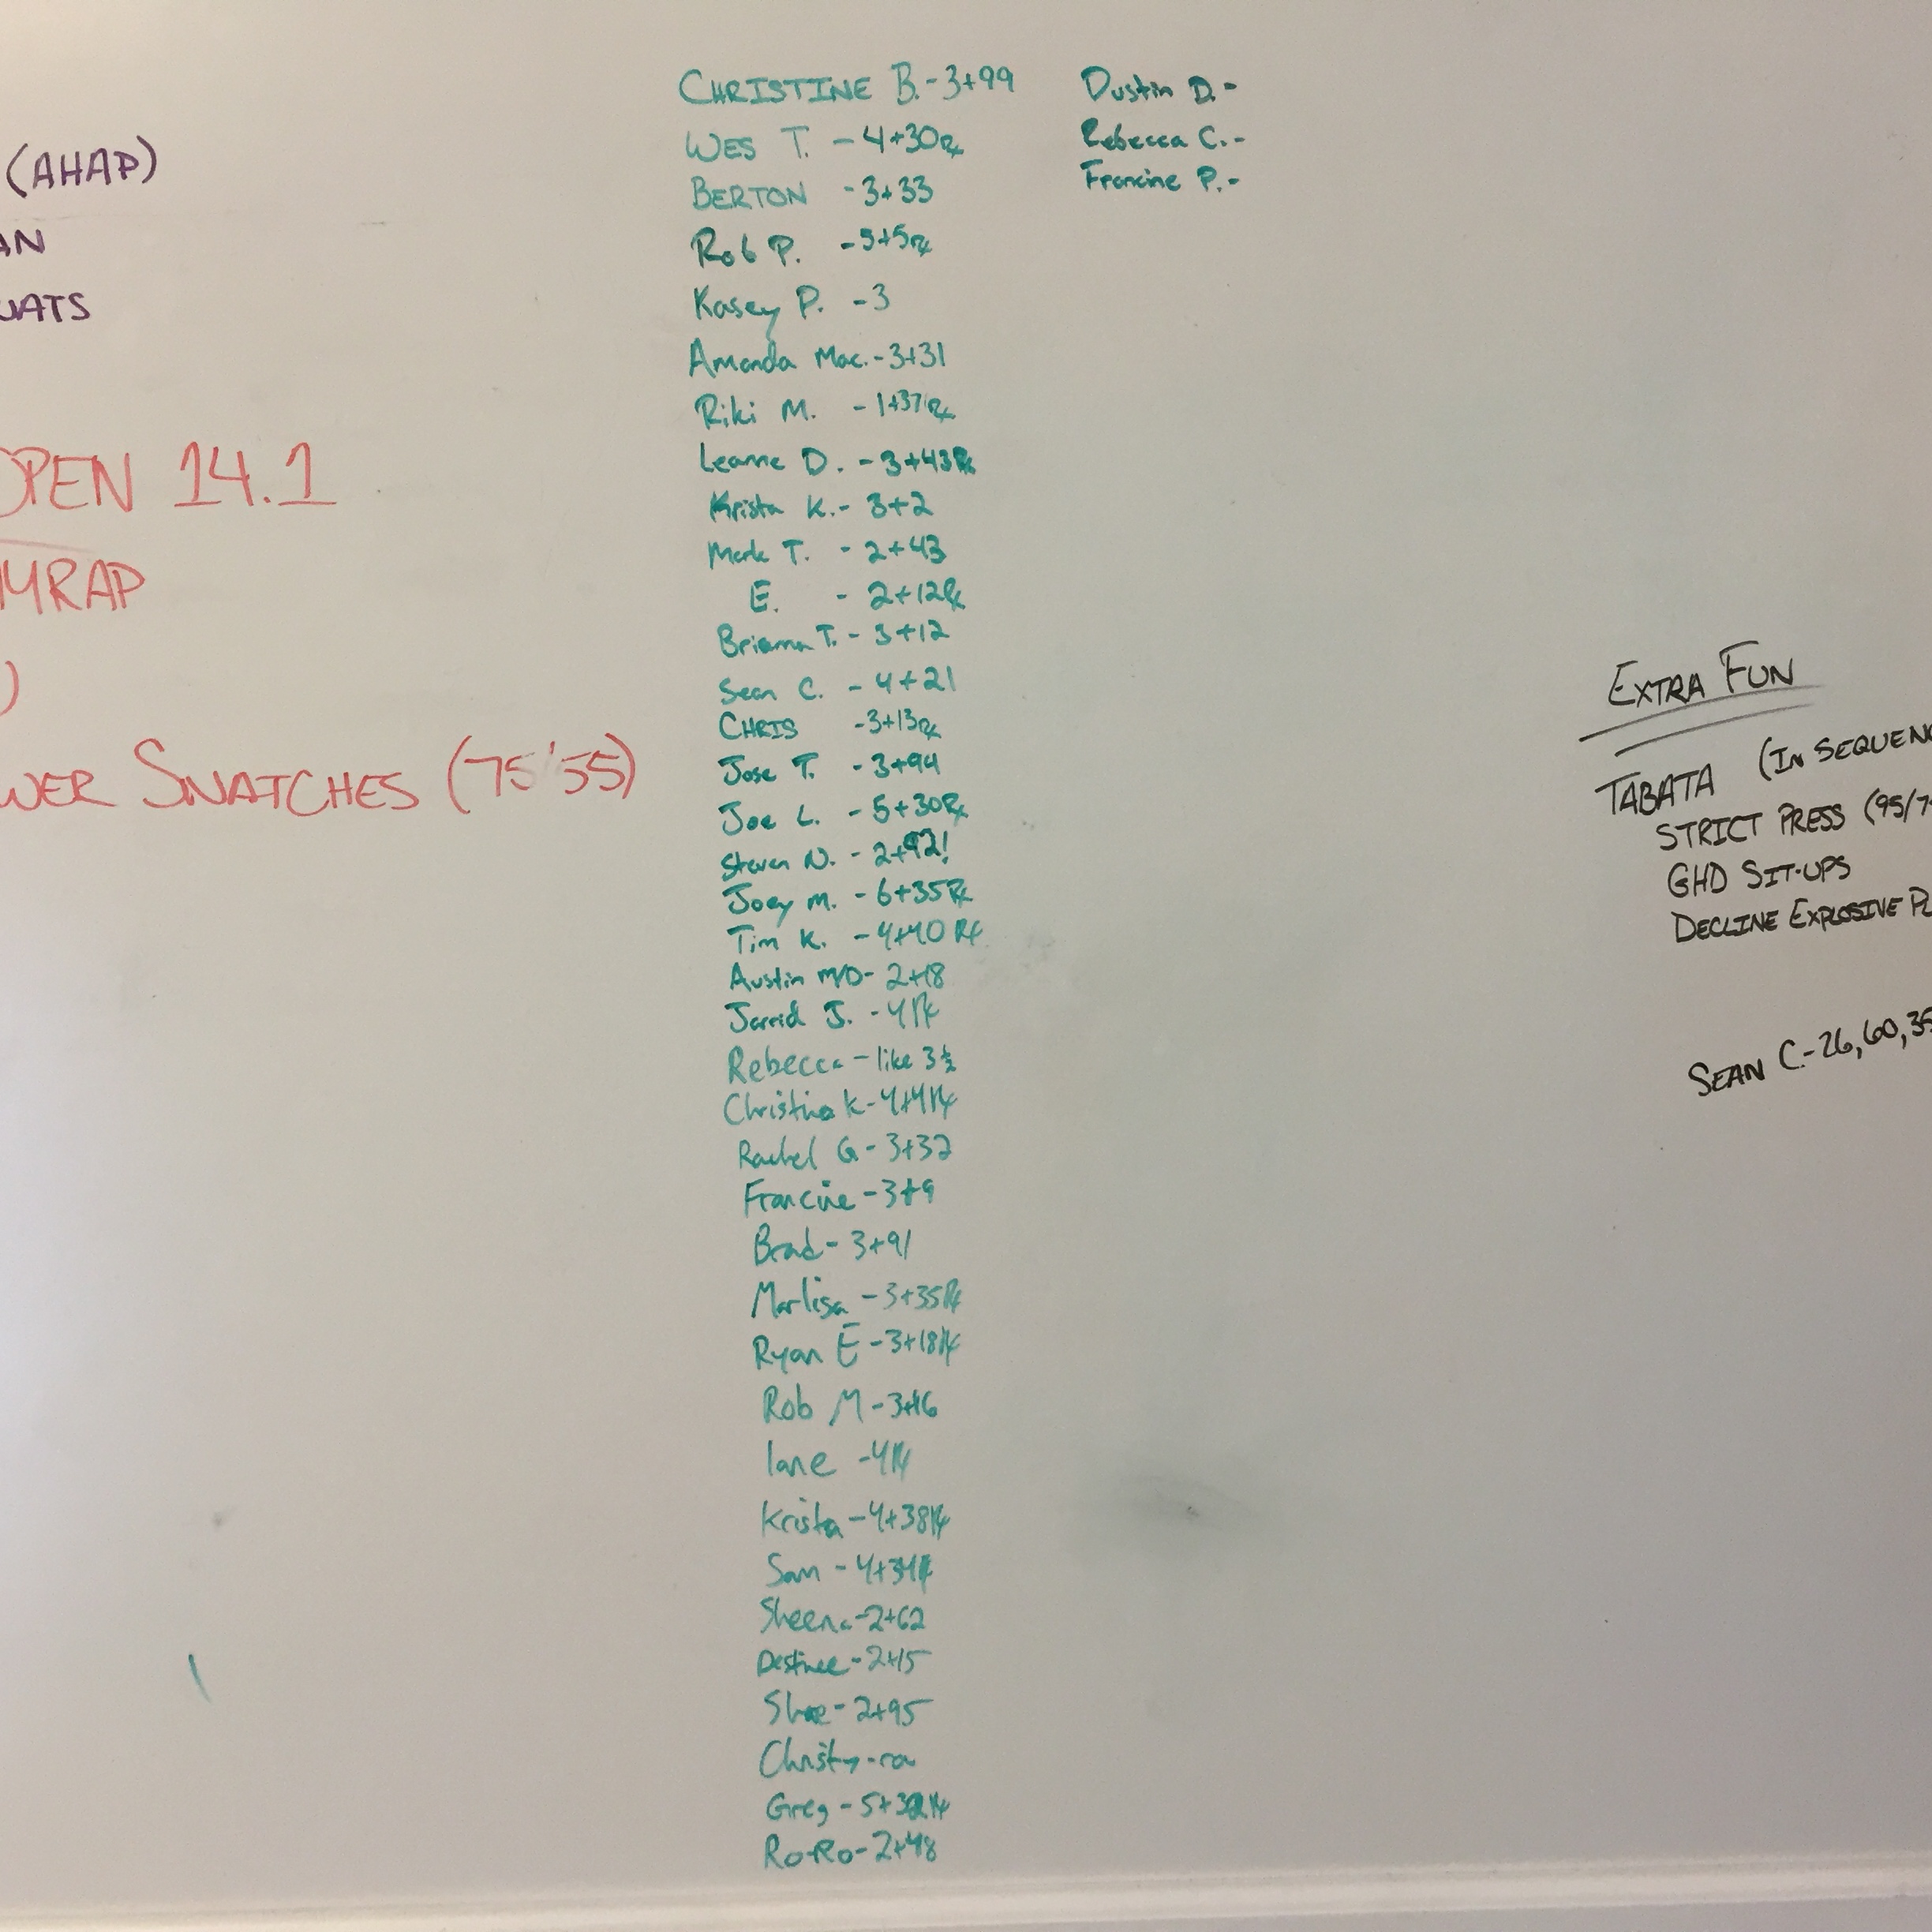 (AHAP)
AN
UATS
OPEN 14.1
MRAP
)
WER SNATCHES (75/55)
CHRISTINE B. - 3+99
WES T. - 4+30Rx
BERTON - 3+33
Rob P. - 5+5Rx
Kasey P. - 3
Amanda Mac. - 3+31
Riki M. - 1+37Rx
Leanne D. - 3+43Rx
Krista K. - 3+2
Mark T. - 2+43
E. - 2+12Rx
Brianna T. - 3+12
Sean C. - 4+21
CHRIS - 3+13Rx
Jose T. - 3+94
Joe L. - 5+30Rx
Steven N. - 2+92!
Joey M. - 6+35Rx
Tim K. - 4+40 Rx
Austin M/D - 2+18
Jarrid J. - 4Rx
Rebecca - like 3½
Christina K - 4+4Rx
Rachel G - 3+32
Francine - 3+9
Brad - 3+91
Marlisa - 3+35Rx
Ryan E - 3+18Rx
Rob M - 3+16
lane - 4Rx
Krista - 4+38Rx
Sam - 4+34Rx
Sheena - 2+62
Destinee - 2+15
- 2+95
Christy -
Greg - 5+32Rx
Ro-Ro - 2+48
Dustin D. -
Rebecca C. -
Francine P. -
EXTRA FUN
TABATA (IN SEQUENC
STRICT PRESS (95/7
GHD SIT-UPS
DECLINE EXPLOSIVE PU
SEAN C - 26, 60, 35